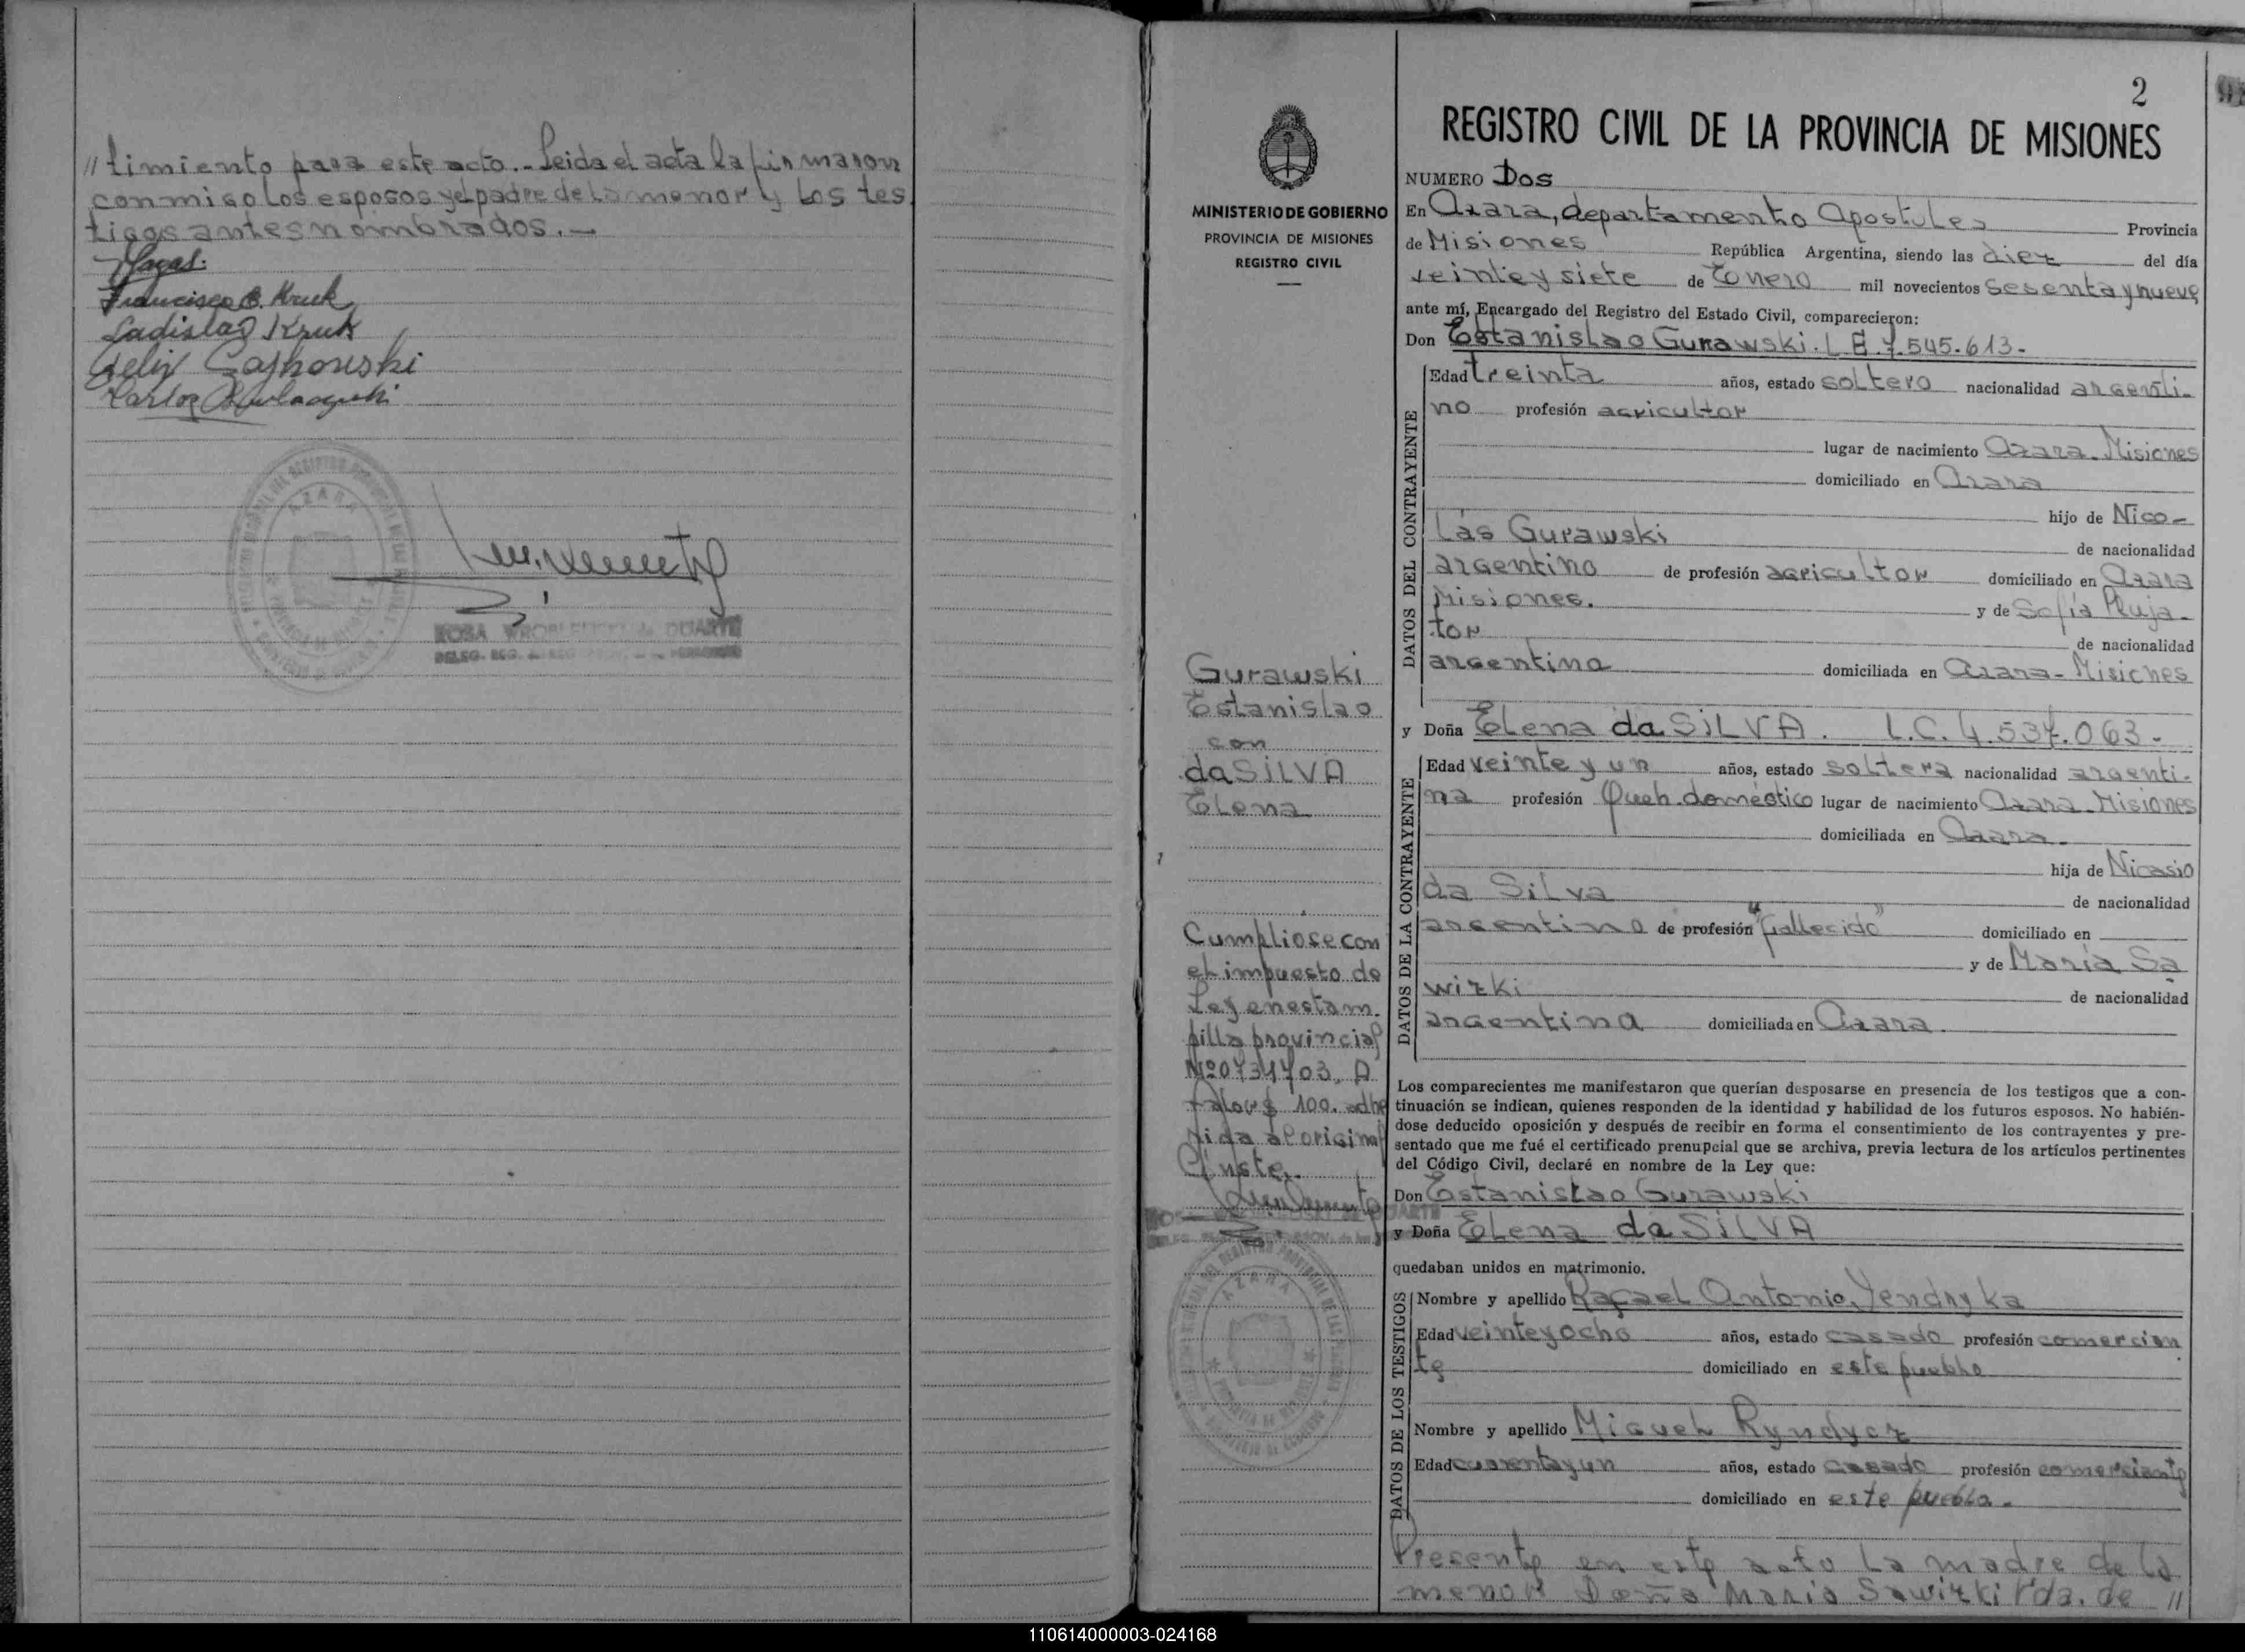 // timiento para este acto.- Leida el acta la firmaron
conmigo los esposos y el padre de la menor y los tes
tigos antes nombrados.-
Francisca B. Kruk
Ladislao Kruk
Felix
Karlos
AZARA
ROSA WROBLEWSKI de DUARTE
2
REGISTRO CIVIL DE LA PROVINCIA DE MISIONES
MINISTERIO DE GOBIERNO
PROVINCIA DE MISIONES
REGISTRO CIVIL
Gurawski
Estanislao
con
da SiLVA
Elena
Cumpliose con
el impuesto de
Ley en estam-
pilla provincial
Nº 0731703. A
valor $ 100. adhe
rida al original
Conste.-
AZARA
NUMERO Dos
En Azara, departamento Apostoles Provincia
de Misiones República Argentina, siendo las diez del día
veinte y siete de Enero mil novecientos sesenta y nueve
ante mí, Encargado del Registro del Estado Civil, comparecieron:
Don Estanislao Gurawski. L.E. 7.545.613.-
DATOS DEL CONTRAYENTE
Edad treinta años, estado soltero nacionalidad argenti-
no profesión agricultor
lugar de nacimiento Azara-Misiones
domiciliado en Azara
hijo de Nico-
lás Gurawski de nacionalidad
argentino de profesión agricultor domiciliado en Azara
Misiones. y de Sofía Pluja-
tor de nacionalidad
argentina domiciliada en Azara-Misiones
y Doña Elena da SiLVA. L.C. 4.537.063-
DATOS DE LA CONTRAYENTE
Edad veinte y un años, estado soltera nacionalidad argenti-
na profesión Queh. doméstico lugar de nacimiento Azara-Misiones
domiciliada en Azara.
hija de Nicasio
da Silva de nacionalidad
argentino de profesión "fallecido" domiciliado en
y de María Sa
wizki de nacionalidad
argentina domiciliada en Azara.
Los comparecientes me manifestaron que querían desposarse en presencia de los testigos que a con-
tinuación se indican, quienes responden de la identidad y habilidad de los futuros esposos. No habién-
dose deducido oposición y después de recibir en forma el consentimiento de los contrayentes y pre-
sentado que me fué el certificado prenupcial que se archiva, previa lectura de los artículos pertinentes
del Código Civil, declaré en nombre de la Ley que:
Don Estanislao Gurawski
y Doña Elena da SiLVA
quedaban unidos en matrimonio.
DATOS DE LOS TESTIGOS
Nombre y apellido Rafael Antonio Yendryka
Edad veinte y ocho años, estado casado profesión comercian
te domiciliado en este pueblo
Nombre y apellido Miguel Ryndycz
Edad cuarenta y un años, estado casado profesión comerciante
domiciliado en este pueblo.-
Presente en este acto la madre de la
menor Doña Maria Sawizki Vda. de //
110614000003-024168